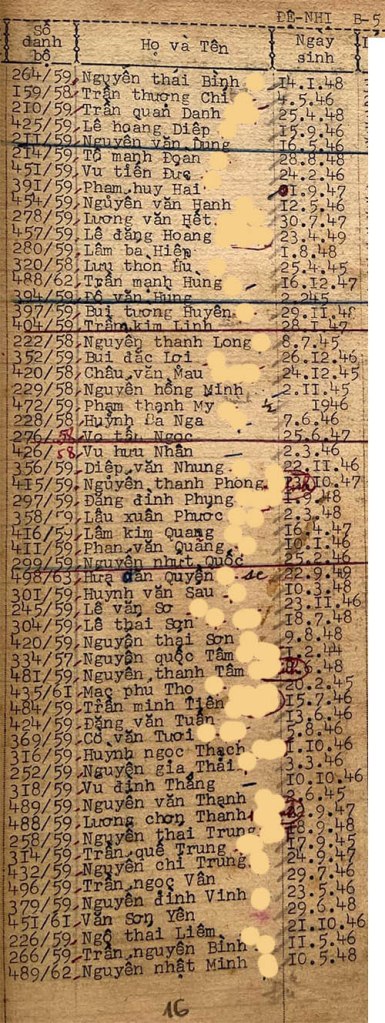 ĐỆ-NHỊ B-5
Số danh bộ Họ và Tên Ngày sinh
264/59 Nguyễn thái Bình I4.I.48
I59/58 Trần thương Chi 4.5.46
2I0/59 Trần quan Danh 25.4.48
425/59 Lê hoang Diệp I5.9.46
2II/59 Nguyễn văn Dung I6.5.46
2I4/59 Tô mạnh Đoan 28.8.48
45I/59 Vu tiến Đưc 24.2.46
39I/59 Pham huy Hai I.9.47
454/59 Nguyễn văn Hanh I2.5.46
278/59 Lương văn Hết 30.7.47
457/59 Lê đăng Hoang 23.4.49
280/59 Lâm ba Hiệp I.8.48
320/58 Lưu thon Hu 25.4.45
488/62 Trần mạnh Hung I6.I2.47
394/59 Đỗ văn Hung 2.245
397/59 Bui tương Huyên 29.II.48
404/59 Trần kim Linh 28.I.47
222/58 Nguyễn thanh Long 8.7.45
352/59 Bui đắc Loi 26.I2.46
420/58 Châu văn Mau 24.I2.45
229/58 Nguyễn hồng Minh 2.II.45
472/59 Phạm thanh My I946
228/58 Huynh Ba Nga 7.6.46
276/58 Vo tấn Ngoc 25.6.47
426/58 Vu hưu Nhân 2.3.46
356/59 Diệp văn Nhung 22.II.46
4I5/59 Nguyễn thanh Phong I0.47
297/59 Đăng đinh Phụng .48
358/59 Lâu xuân Phươc 2.3.48
4I6/59 Lâm kim Quang I6.4.47
4II/59 Phan văn Quang I0.I.46
299/59 Nguyễn nhưt Quốc 25.2.46
498/63 Hưa dân Quyền sc 22.9.49
30I/59 Huynh văn Sau I0.3.48
245/59 Lê văn So 23.II.46
304/59 Lê thai Sơn 20.7.48
420/59 Nguyễn thai Sơn 9.8.48
334/57 Nguyễn quốc Tâm I.2.44
48I/59 Nguyễn thanh Tâm .48
435/6I Mac phu Tho 20.2.45
484/59 Trần minh Tiên I5.7.46
424/59 Đặng văn Tuấn I3.6.48
369/59 Cổ văn Tươi 5.8.46
3I6/59 Huỳnh ngoc Thach I.I0.46
252/59 Nguyễn gia Thái 3.3.46
3I8/59 Vu đinh Thắng I0.I0.46
489/59 Nguyễn văn Thanh 2.6.45
488/59 Lương chơn Thanh .9.47
258/59 Nguyễn thai Trung I8.9.48
3I4/59 Trần quế Trung I7.9.45
432/59 Nguyễn chi Trung 24.9.47
496/59 Trần ngoc Vân 29.7.46
379/59 Nguyễn đinh Vinh 23.5.46
45I/6I Văn Sơn Yên 29.6.48
226/59 Ngô thai Liêm 2I.I0.46
266/59 Trần nguyên Bỉnh II.5.46
489/62 Nguyễn nhật Minh I0.5.48
16